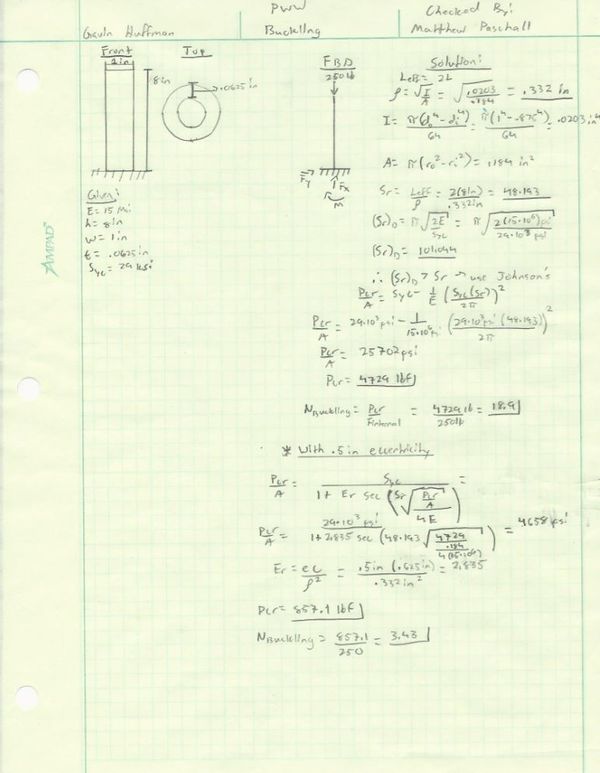 PWW
Checked By:
Gavin Huffman
Buckling
Matthew Paschall
Front
1 in
8 in
Top
.0625 in
Given:
E = 15 Msi
h = 8 in
w = 1 in
t = .0625 in
Syc = 29 ksi
AMPAD
FBD
250 lb
Fy
Fx
M
Solution:
Leff = 2L
ρ = √(I/A) = √(.0203/.184) = .332 in
I = π(do⁴ - di⁴)/64 = π(1⁴ - .875⁴)/64 = .0203 in⁴
A = π(ro² - ri²) = .184 in²
Sr = Leff/ρ = 2(8in)/.332in = 48.193
(Sr)D = π√(2E/Syc) = π√(2(15·10⁶)psi/29·10³ psi)
(Sr)D = 101.044
∴ (Sr)D > Sr → use Johnson's
Pcr/A = Syc - 1/E (Syc(Sr)/2π)²
Pcr/A = 29·10³ psi - 1/15·10⁶psi (29·10³psi (48.193)/2π)²
Pcr/A = 25702 psi
Pcr = 4729 lbf
NBuckling = Pcr/Finternal = 4729 lb/250 lb = 18.91
* With .5 in eccentricity
Pcr/A = Syc/(1 + Er sec (Sr √((Pcr/A)/4E))) =
Pcr/A = 29·10³ psi/(1 + 2.835 sec (48.193 √((4729/.184)/4(15·10⁶)))) = 4658 psi
Er = ec/ρ² = .5in (.625in)/.332in² = 2.835
Pcr = 857.1 lbf
NBuckling = 857.1/250 = 3.43